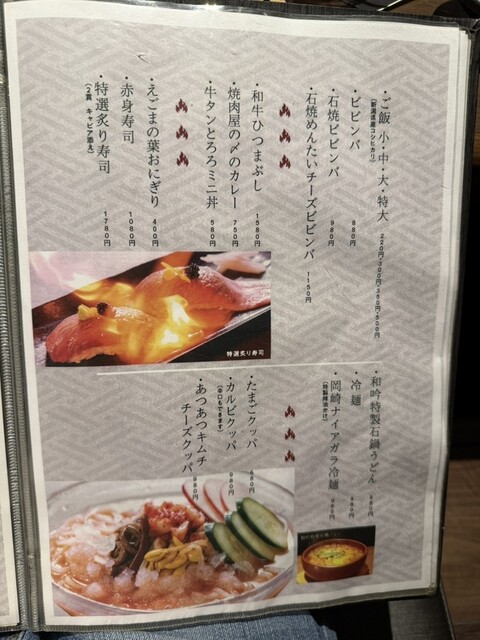 ・ご飯 小・中・大・特大 220円・300円・350円・500円
(新潟県産コシヒカリ)
・ビビンバ 880円
・石焼ビビンバ 980円
・石焼めんたいチーズビビンバ 1150円
・和牛ひつまぶし 1580円
・焼肉屋の〆のカレー 750円
・牛タンとろろミニ丼 580円
・えごまの葉おにぎり 400円
・赤身寿司 1080円
・特選炙り寿司 1780円
(2貫 キャビア添え)
特選炙り寿司
・和吟特製石鍋うどん
・冷麺
・岡崎ナイアガラ冷麺
・たまごクッパ
・カルビクッパ 980円
(辛口もできます)
・あつあつキムチ
チーズクッパ 980円